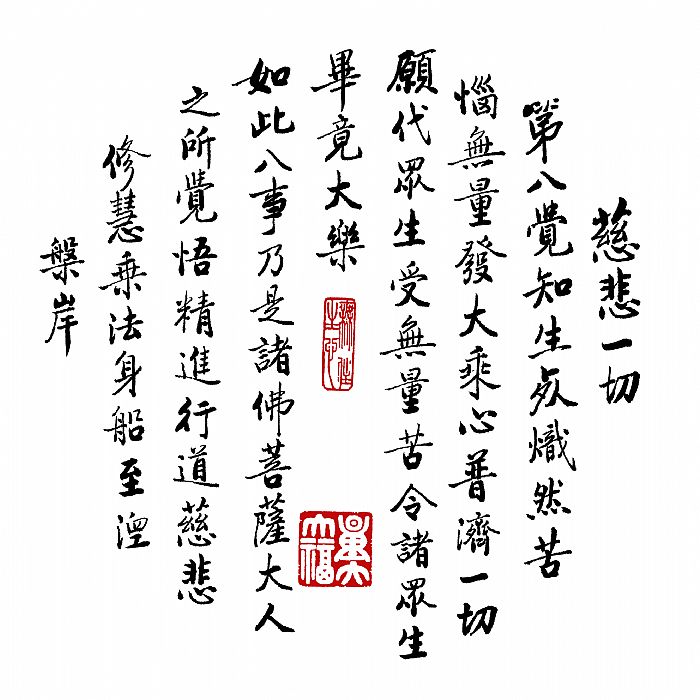 慈悲一切
第八覺知生死熾然苦
惱無量發大乘心普濟一切
願代眾生受無量苦令諸眾生
畢竟大樂
量大福大
如此八事乃是諸佛菩薩大人
之所覺悟精進行道慈悲
修慧乘法身船至涅
槃岸